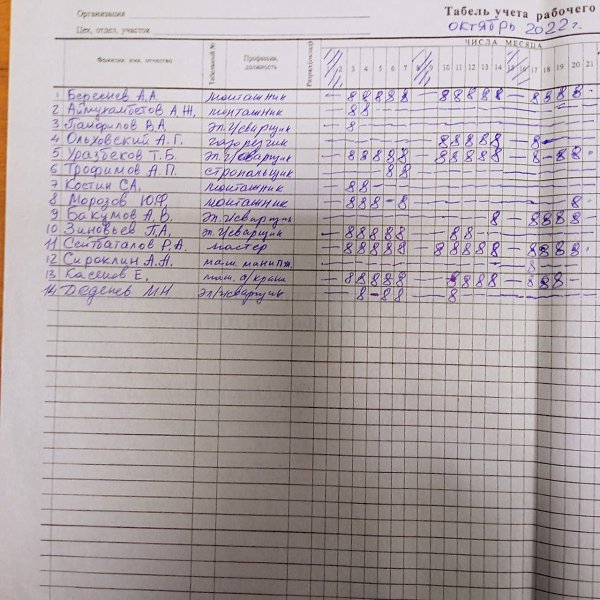 Организация
Табель учета рабочего
Цех, отдел, участок
октябрь 2022 г.
ЧИСЛА МЕСЯЦА
Фамилия, имя, отчество Табельный № Профессия, должность 2 3 4 5 6 7 8 9 10 11 12 13 14 15 16 17 18 19 20 21
1 А.А. монташник – 8 8 8 8 8 – 8 8 8 8 8 – 8 8 8 8
2 Аймухамбетов А.Ж. монташник 8 8
3 Памфилов В.А эл.г/сварщик 8
4 Ольховский А.Г. газорезчик 8 8 8 8 8 – 8
5 Уразбеков Т.Б. эл.г/сварщик – 8 8 8 8 8 – 8 8 8 8 8 – 8 – 8 8
6 Трофимов А.П. стропальщик 8 8
7 Костин С.А. монташник – 8 8
8 Морозов Ю.Ф. монташник 8 8 8 – 8 8
9 Бакумов А.В. эл.г/сварщик 8 – 8 8 8 8
10 Зиновьев П.А. эл.г/сварщик – 8 8 8 8 8 – 8 8
11 Сейтбаталов Р.А. мастер – 8 8 8 8 8 – 8 8 8 8 8 – 8 8 8 8
12 А.А. маш. манип. 8
13 Е. маш. а/крана – 8 8 8 8 8 – 8 8 8 8 – 8 8 8
14. М.Н эл/г/сварщик 8 – 8 8 8